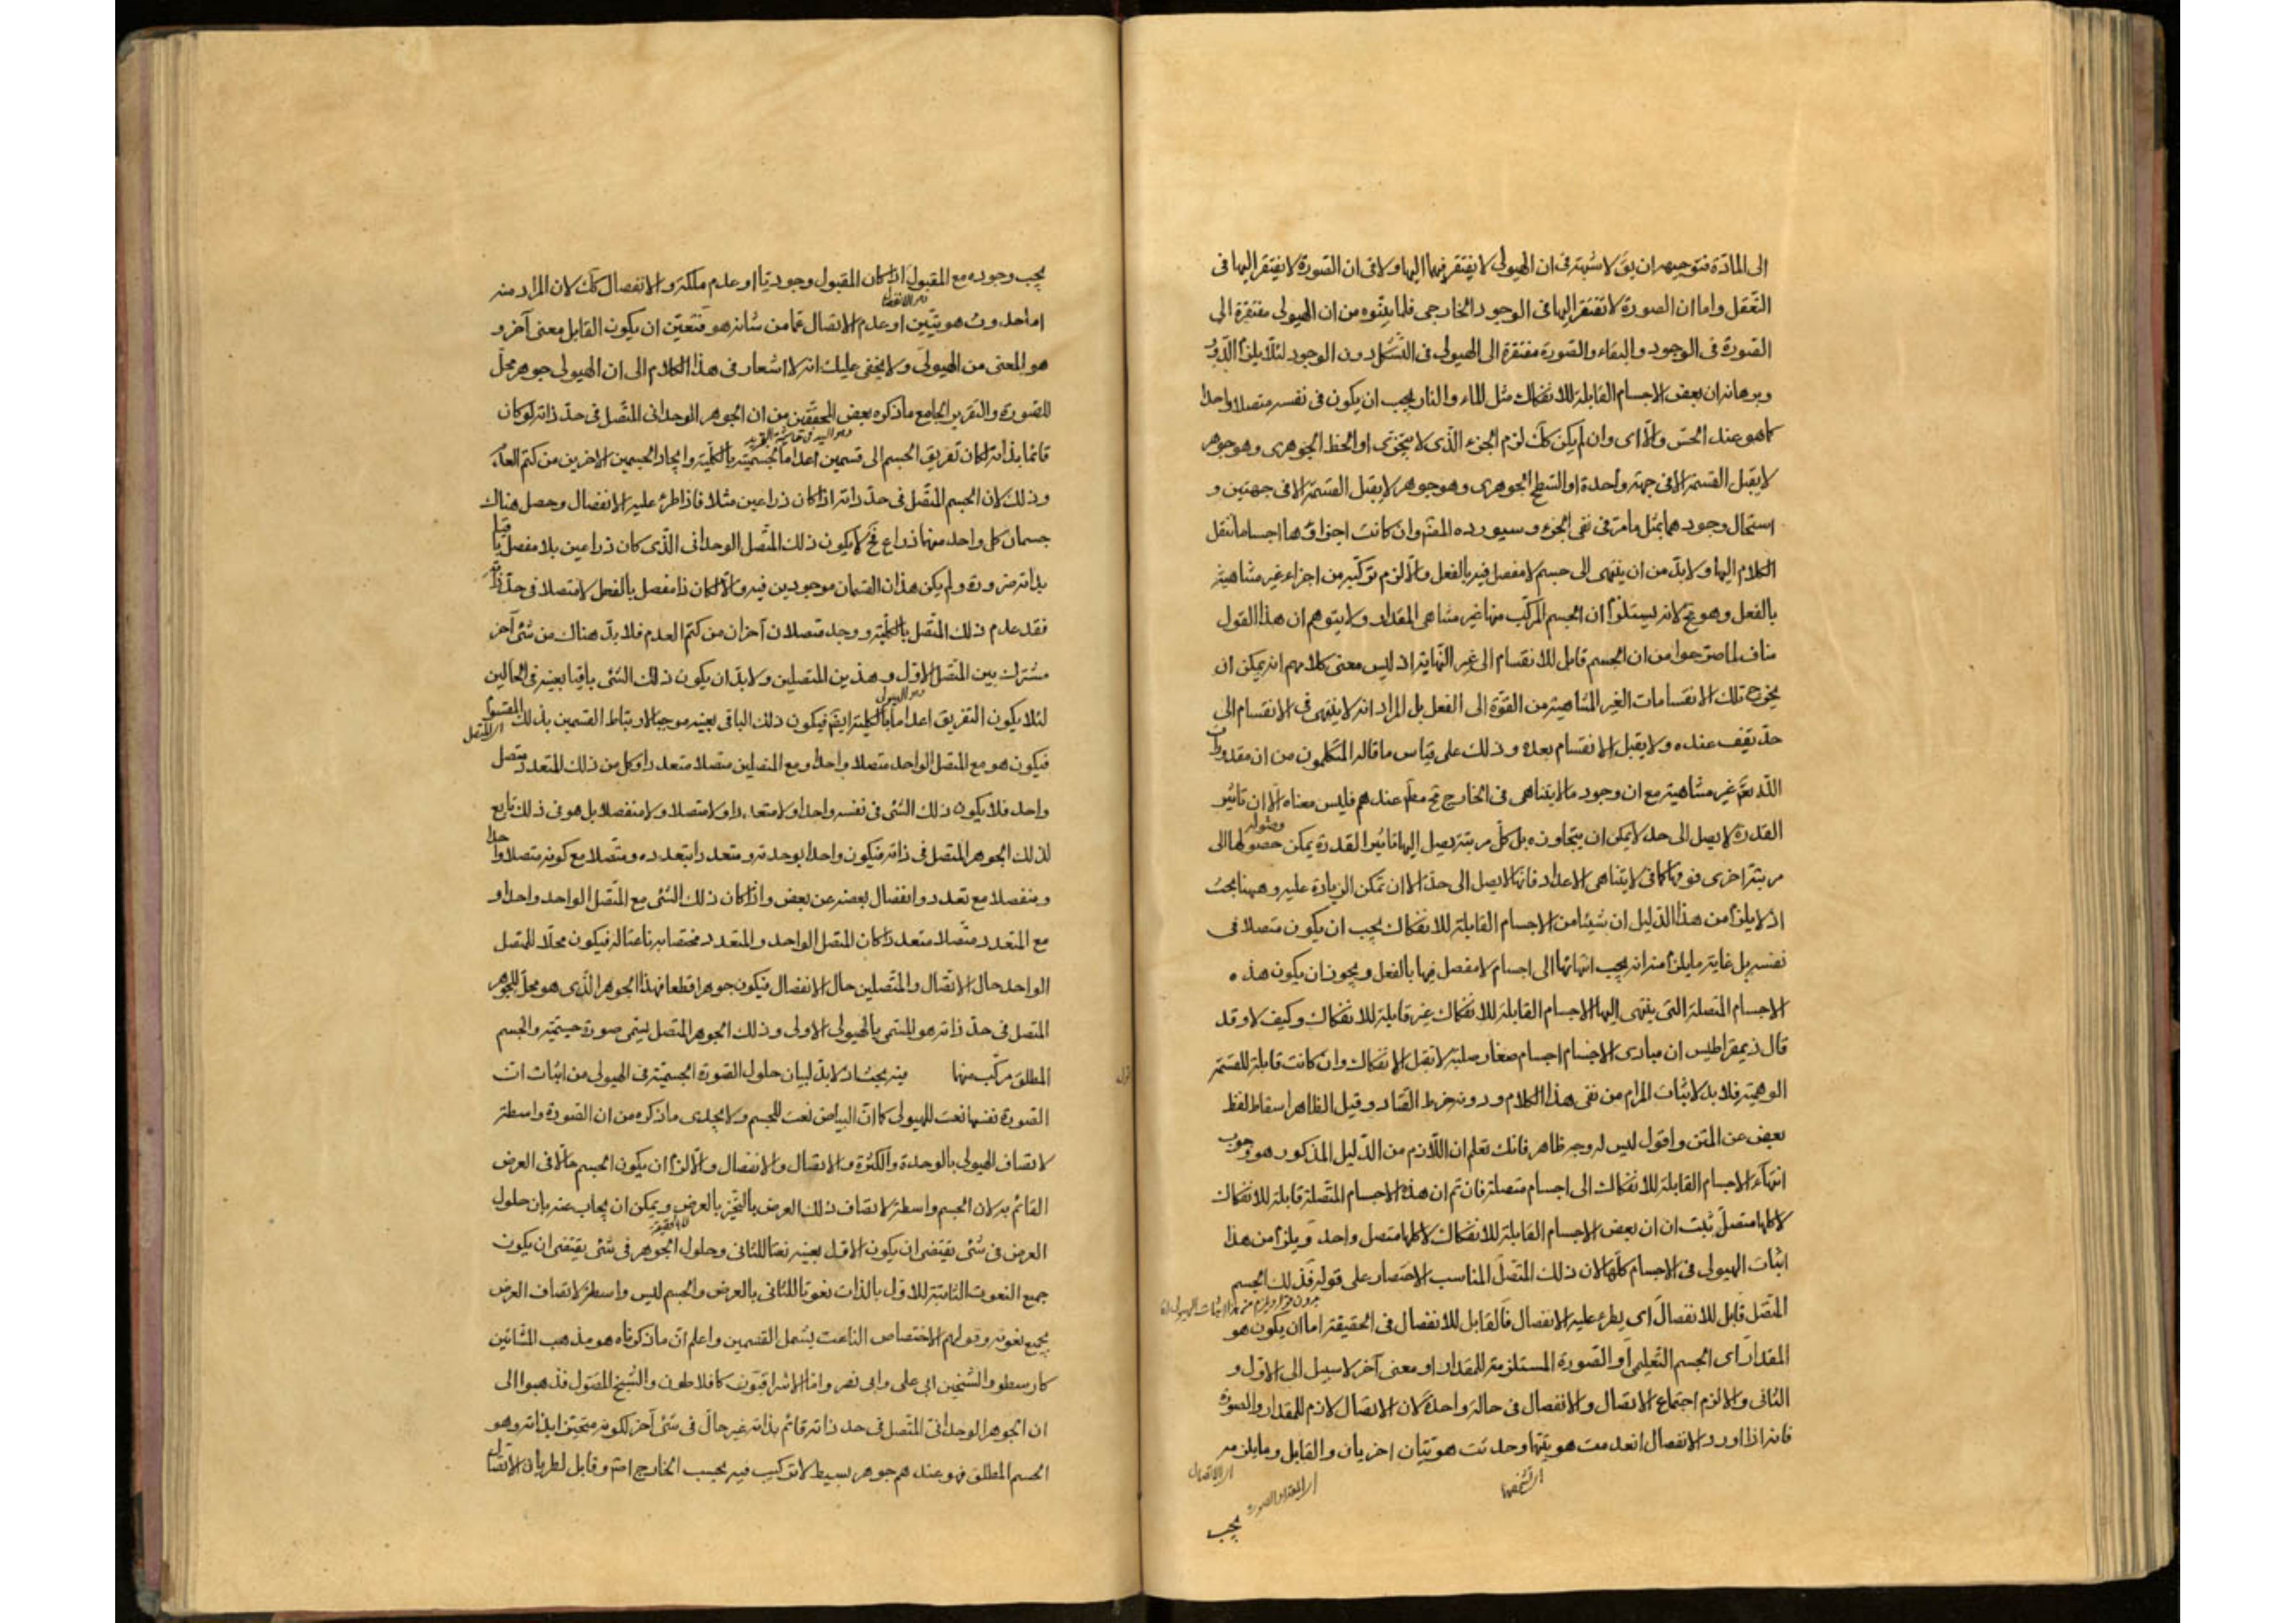 الى المادّة فتوجيهه ان يقَ لا شبهة فى ان الهيولى لا يفتقر فيهما اليها ولا فى ان الصّورة لا يفتقر اليها فى
التّعقل واما ان الصورة لا تفتقر اليها فى الوجود الخارجى فلما بيّنوه من ان الهيولى مفتقرة الى
الصّورة فى الوجود والبقاء والصّورة مفتقرة الى الهيولى فى التّشكل دون الوجود لئلّا يلزم الدّور
وبرهانه ان بعض الاجسام القابلة للانفكاك مثل الماء والنار يجب ان يكون فى نفسه متصلا واحدا
كما هو عند الحسّ والّا اى وان لم يكن كك لزم الجزء الّذى لا يتجزى او الخط الجوهرى وهو جوهر
لا يقبل القسمة الا فى جهة واحدة او السّطح الجوهرى وهو جوهر لا يقبل القسمة الا فى جهتين و
استحال وجودهما بمثل ما مرّ فى نفى الجزء وسيورده المصّ وان كانت اجزاؤها اجساما ننقل
الكلام اليها ولا بدّ من ان ينتهى الى جسم لا مفصل فيه بالفعل والّا لزم تركّبه من اجزاء غير متناهية
بالفعل وهو مح لانه يستلزم ان الجسم المركّب منها غير متناهى المقدار ولا يتوهم ان هذا القول
مناف لما صرّحوا من ان الجسم قابل للانقسام الى غير النّهاية اذ ليس معنى كلامهم انه يمكن ان
يخرج تلك الانقسامات الغير المتناهية من القوّة الى الفعل بل المراد انه لا ينتهى فى الانقسام الى
حدّ يقف عنده ولا يقبل الانقسام بعده وذلك على قياس ما قاله المتكلمون من ان مقدورات
اللّه تعَ غير متناهية مع ان وجود ما لا يتناهى فى الخارج مح مطّ عندهم فليس معناه الّا ان تاثير
القدرة لا يصل الى حد لا يمكن ان يتجاوزه بل كلّ مرتبة يصل اليها تاثير القدرة يمكن حصولها الى
مرتبة اخرى فوقها كما فى لا يتناهى الاعداد فانها لا يصل الى حدّ الا ان تمكن الزيادة عليه وههنا بحث
اذ لا يلزم من هذا الدّليل ان شيئا من الاجسام القابلة للانفكاك يجب ان يكون متصلا فى
نفسه بل غاية ما يلزم منه انه يجب انتهائها الى اجسام لا مفصل فيها بالفعل ويجوز ان يكون هذه
الاجسام المتصلة التى ينتهى اليها الاجسام القابلة للانفكاك غير قابلة للانفكاك وكيف لا وقد
قال ذيمقراطيس ان مبادى الاجسام اجسام صغار صلبة لا تقبل الانفكاك وان كانت قابلة للقسمة
الوهمية فلا بد لاثبات المرام من نفى هذا الكلام ودونه خرط القتاد وقيل الظاهر اسقاط لفظ
بعض عن المتن واقول ليس له وجه ظاهر فانك تعلم ان اللّازم من الدّليل المذكور هو وجوب
انتهاء الاجسام القابلة للانفكاك الى اجسام متصلة فان تم ان هذه الاجسام المتّصلة قابلة للانفكاك
لا كلها متصلّ ثبت ان ان بعض الاجسام القابلة للانفكاك لا كلها متصل واحد ويلزم من هذا
اثبات الهيولى فى الاجسام كلّها لان ذلك المتّصل المناسب الاختصار على قوله فذلك الجسم
المتّصل قابل للانفصال اى يطرء عليه الانفصال فالقابل للانفصال فى الحقيقة اما ان يكون هو
المقدار اى الجسم التّعليمى او الصّورة المستلزمة للمقدار او معنى آخر لا سبيل الى الاوّل و
الثانى والا لزم اجتماع الاتصال والانفصال فى حالة واحدة لان الاتصال لازم للمقدار والصورة
فانه اذا اورد الانفصال انعدمت هويتها وحدثت هويّتان اخريان والقابل وما يلزمه
اى الاتصال
اى المقدار والصورة
اى تشخصها
يجب
يجب وجوده مع المقبول اذا كان المقبول وجوديّا او عدم ملكة والانفصال كك لان المراد منه
اما حدوث هويّتين او عدم الاتصال عما من شانه هو فتعيّن ان يكون القابل معنى آخر و
هو المعنى من الهيولى ولا يخفى عليك انه لا اشعار فى هذا الكلام الى ان الهيولى جوهر محلّ
للصّورة والتقرير الجامع ما ذكره بعض المحققين من ان الجوهر الوحدانى المتّصل فى حدّ ذاته لو كان
قائما بذاته لكان تفريق الجسم الى قسمين اعداما لجسميته بالكلّية وايجادا لجسمين الاخرين من كتم العدم
وذلك لان الجسم المتّصل فى حدّ ذاته اذا كان ذراعين مثلا فاذا طرء عليه الانفصال وحصل هناك
جسمان كل واحد منهما ذراع فح لا يكون ذلك المتّصل الوحدانى الّذى كان ذراعين بلا مفصل باقيا
بذاته ضرورة ولم يكن هذان القسمان موجودين فيه والّا لكان ذا مفصل بالفعل لا متصلا فى حدّ ذاته
فقد عدم ذلك المتّصل بالكلّية ووجد متصلان آخران من كتم العدم فلا بدّ هناك من شئ آخر
مشترك بين المتّصل الاول وهذين المتصلين ولا بدّ ان يكون ذلك الشئ باقيا بعينه فى الحالين
لئلا يكون التفريق اعداما بالكلية ايضَ فيكون ذلك الباقى بعينه موجبا لارتباط القسمين بذلك المقسوم
فيكون هو مع المتصل الواحد متصلا واحدا ومع المتصلين متصلا متعددا وكل من ذلك المتعدد متصل
واحد فلا يكون ذلك الشئ فى نفسه واحدا ولا متعددا ولا متصلا ولا منفصلا بل هو فى ذلك تابع
لذلك الجوهر المتصل فى ذاته فيكون واحدا بوحدته ومتعددا بتعدده ومتصلا مع كونه متصلا واحدا
ومنفصلا مع تعدده وانفصال بعضه عن بعض واذا كان ذلك الشئ مع المتّصل الواحد واحدا و
مع المتعدد متّصلا متعددا كان المتصل الواحد والمتعدد مختصا به ناعتا له فيكون محلّا للمتصل
الواحد حال الاتصال والمتّصلين حال الانفصال فيكون جوهرا قطعا فهذا الجوهر الّذى هو محلّ للجوهر
المتصل فى حدّ ذاته هو المسمّى بالهيولى الاولى وذلك الجوهر المتصل يسمّى صورة جسميّة والجسم
المطلق مركّب منهما فيه بحث اذ لا بدّ لبيان حلول الصّورة الجسميّة فى الهيولى من اثبات ان
الصّورة نفسها نعت للهيولى كما انّ البياض نعت للجسم ولا يجدى ما ذكره من ان الصّورة واسطة
لاتصاف الهيولى بالوحدة والكثرة والاتصال والانفصال والّا لزم ان يكون الجسم حالّا فى العرض
القائم به لان الجسم واسطة لاتصاف ذلك العرض بالتحّيز بالعرض ويمكن ان يجاب عنه بان حلول
العرض فى شئ يقتضى ان يكون الاوّل بعينه نعتا للثانى وحلول الجوهر فى شئ يقتضى ان يكون
جميع النعوت الثابتة للاوّل بالذات نعوتا للثانى بالعرض والجسم ليس واسطة لاتصاف العرض
بجميع نعوته وقولهم الاختصاص الناعت يشمل القسمين واعلم انّ ما ذكرناه هو مذهب المشّائين
كارسطو والشّيخين ابى على وابى نصر وامّا الاشراقيّون كافلاطون والشّيخ المقتول فذهبوا الى
ان الجوهر الوحدانىّ المتّصل فى حد ذاته قائم بذاته غير حالّ فى شئ آخر لكونه متحيّزا بذاته وهو
الجسم المطلق فهو عندهم جوهر بسيط لا تركيب فيه بحسب الخارج اصَّ وقابل لطريان الاتصال